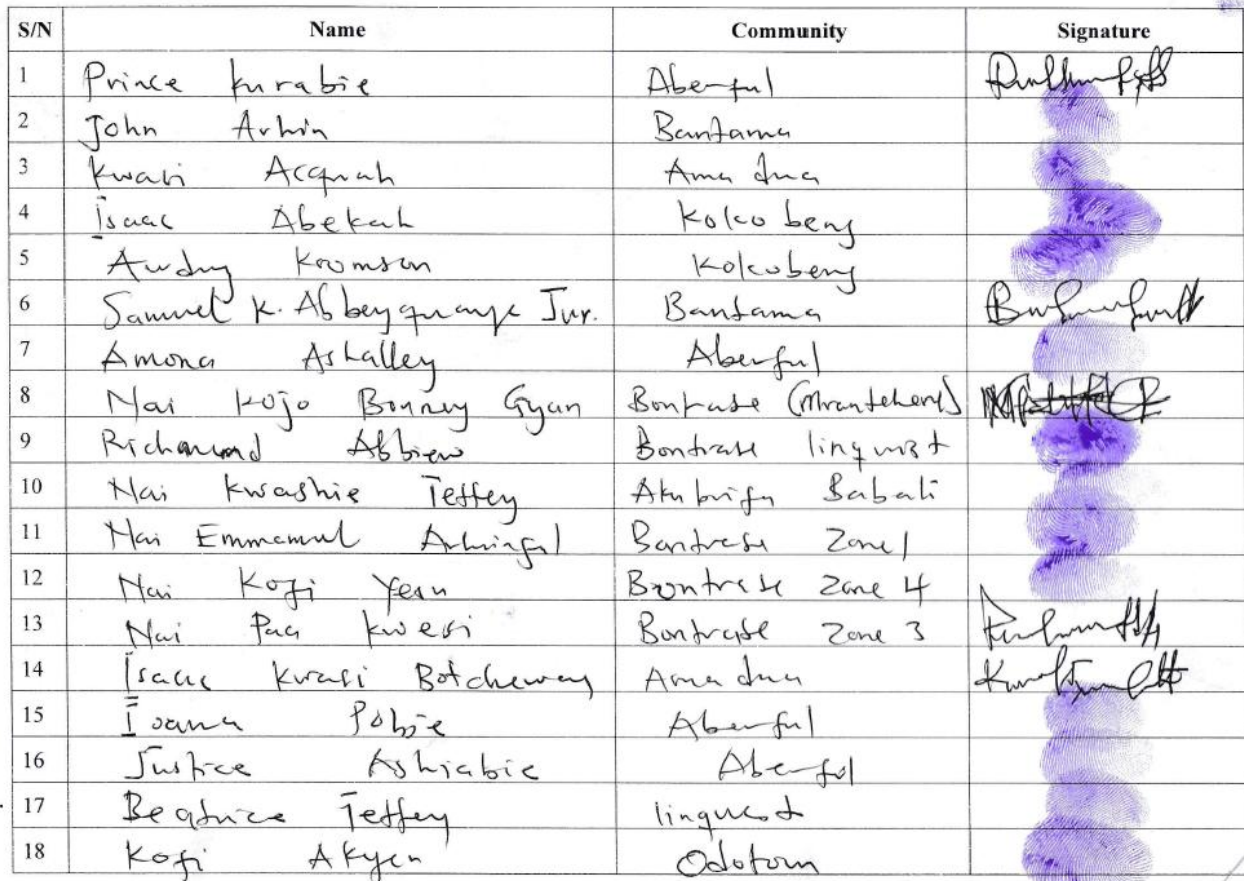 S/N Name Community Signature
1 Prince Kurabie Abenful
2 John Arhin Bantama
3 Kwasi Acquah Ama dua
4 Isaac Abekah Kokobeng
5 Kromson Kokobeng
6 Samuel K. Abbeyquaye Jnr. Bantama
7 Amona Ashalley Abenful
8 Nai Kojo Bonney Gyan Bontrase
9 Richmond Abbiew Bontrase linquist
10 Nai Kwashie Tettey Babali
11 Nai Emmanuel Arhinful Bontrase Zone 1
12 Nai Kofi Yesu Bontrase Zone 4
13 Nai Paa Kwesi Bontrase Zone 3
14 Isaac Kwasi Botchewey Ama dua
15 Abenful
16 Justice Ashiabie Abenful
17 Beatrice Tettey linquist
18 Kofi Akyen Odotom